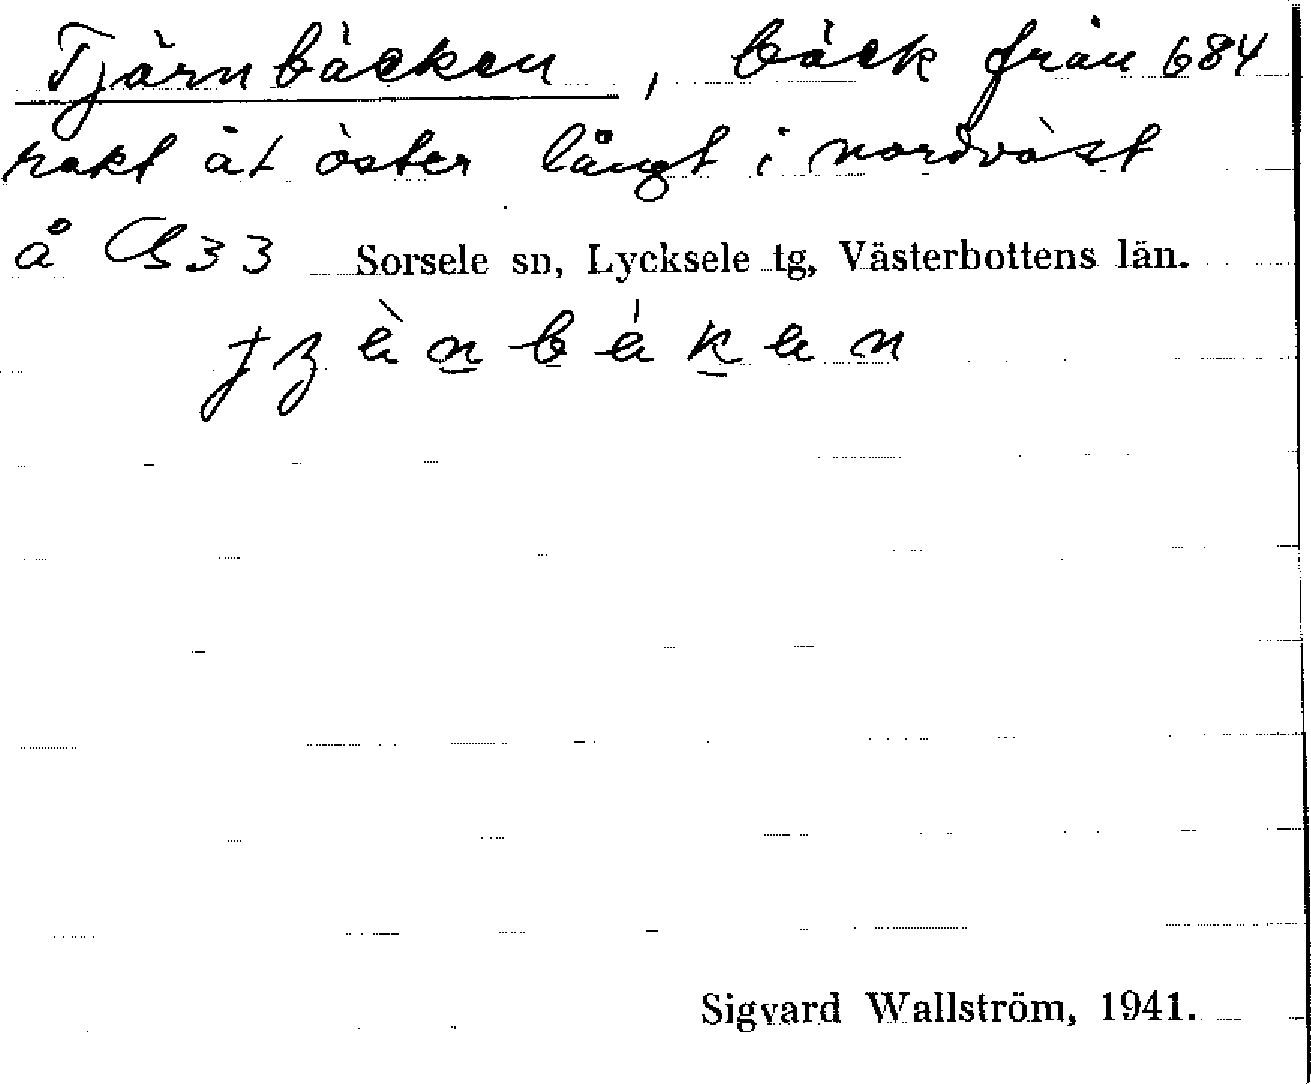 Tjärnbäcken, bäck från 684
rakt åt öster långt i nordväst
å 33 Sorsele sn, Lycksele tg, Västerbottens län.
Sigvard Wallström, 1941.